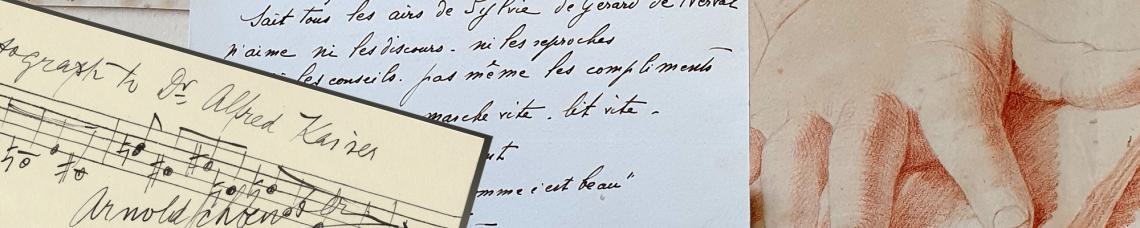 tograph to Dr. Alfred Kaiser
Arnold Schönberg
Sait tous les airs de Sylvie de Gerard de Nerval
n'aime ni les discours - ni les reproches
les conseils. pas même les compliments
marche vite. lit vite.
comme c'est beau"